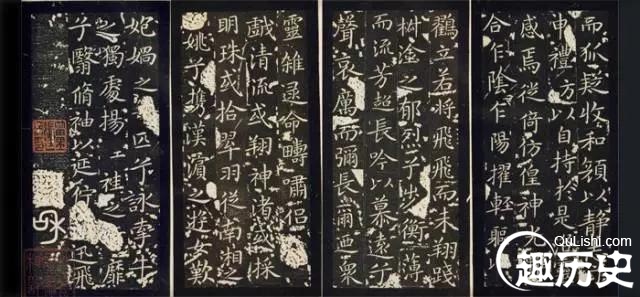 而狐疑收和顏以靜
申禮防以自持於是
感焉徙倚彷徨神
合乍陰乍陽擢輕軀
鸛立若將飛而未翔踐
椒塗之郁烈兮步衡薄
而流芳超長吟以慕遠兮
聲哀厲而彌長爾迺眾
靈雜遝命疇嘯侶
戲清流或翔神渚或採
明珠或拾翠羽從南湘之
姚兮攜漢濱之遊女歎
媧之匹兮詠牽牛
之獨處揚袿之靡
兮翳脩袖以延佇迅飛
QuLishi.com
趣历史